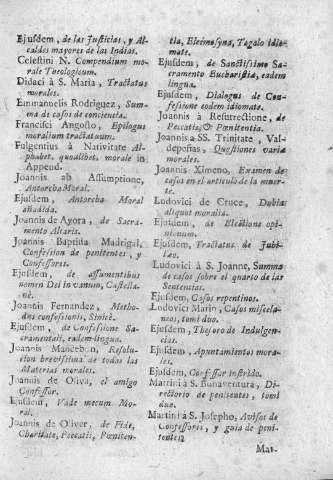 Ejusdem, de las Justicias, y Al-
caldes mayores de las Indias.
Celestini N. Compendium mo-
rale Theologicum.
Didaci à S. Maria, Tractatus
morales.
Emmanuelis Rodriguez, Sum-
ma de casos de conciencia.
Francisci Angosto, Epilogus
moralium tractatuum.
Fulgentius à Nativitate Al-
phabet. quodlibet. morale in
Append.
Joannis ab Assumptione,
Antorcha Moral.
Ejusdem, Antorcha Moral
añadida.
Joannis de Agora, de Sacra-
mento Altaris.
Joannis Baptista Madrigal,
Confesion de penitentes, y
Confessores.
Ejusdem, de assumentibus
nomen Dei in vanum, Castella-
nè.
Joannis Fernandez, Metho-
dus confessionis, Sinicè.
Ejusdem, de Confessione Sa-
cramentali, eadem lingua.
Joannis Mancebon, Resolu-
cion brevissima de todas las
Materias morales.
Joannis de Oliva, el amigo
Confessor.
Ejusdem, Vade mecum Mo-
ral.
Joannis de Oliver, de Fide,
Charitate, Peccatis, Pœniten-
tia, Eleemosyna, Tagalo idio-
mate.
Ejusdem, de Sanctissimo Sa-
cramento Eucharistia, eadem
lingua.
Ejusdem, Dialogus de Con-
fesione eodem idiomate.
Joannis à Resurrectione, de
Peccatis, & Pœnitentia.
Joannis à SS. Trinitate, Val-
depeñas, Quæstiones varia
morales.
Joannis Ximeno, Examen de
casos en el articulo de la muer-
te.
Ludovici de Cruce, Dubia
aliquot moralia.
Ejusdem, de Electione opi-
nionum.
Ejusdem, Tractatus de Jubi-
læo.
Ludovici à S. Joanne, Summa
de casos sobre el quarto de las
Sentencias.
Ejusdem, Casos repentinos.
Ludovici Marin, Casos miscela-
neos, tomi duo.
Ejusdem, Thesoro de Indulgen-
cias.
Ejusdem, Apuntamientos mora-
les.
Ejusdem, Confessor instruido.
Martini à S. Bonaventura, Di-
rectorio de penitentes, tomi
duo.
Martini à S. Josepho, Avisos de
Confessores, y guia de peni-
tentes.
Mat-